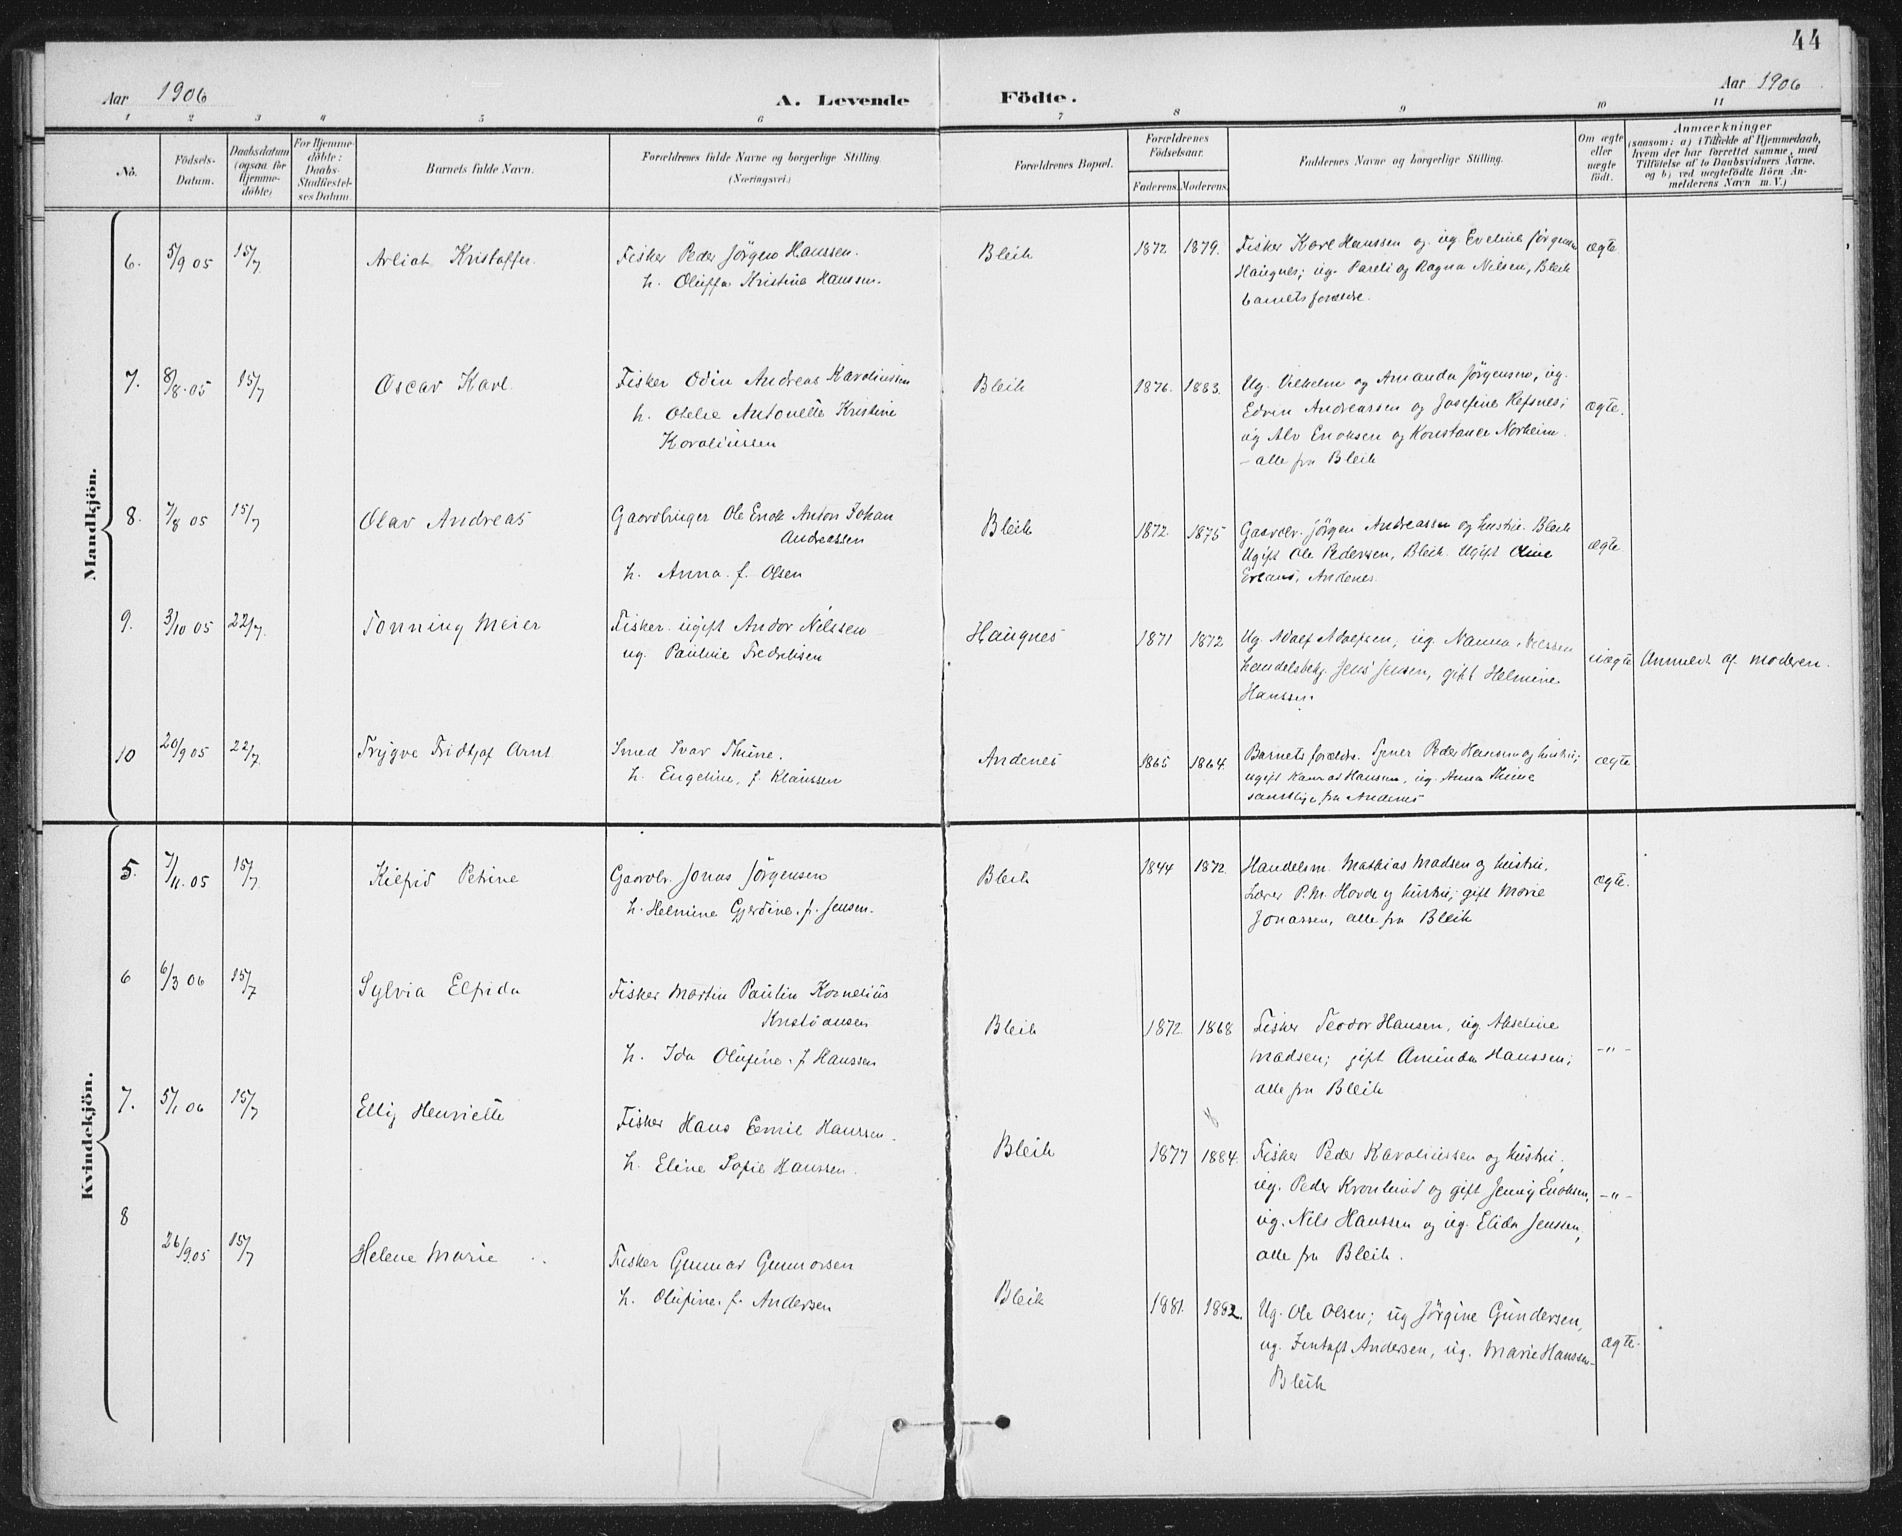 44
Aar 1906 A. Levende Födte. Aar 1906
1 2 3 4 5 6 7 8 9 10 11
No.
Födsels-Datum.
Daabsdatum (ogsaa for Hjemmedöbte)
For Hjemmedöbte: Daabs-Stadfæstelses Datum
Barnets fulde Navn.
Forældrenes fulde Navne og borgerlige Stilling. (Næringsvei.)
Forældrenes Bopæl.
Forældrenes Födselsaar.
Faderens. Moderens.
Faddernes Navne og borgerlige Stilling.
Om ægte eller uægte födt.
Anmærkninger
(saasom: a) i Tilfælde af Hjemmedaab,
hvem der har forrettet samme, med
Tilföielse af to Daabsvidners Navne.
og b) ved uægtefödte Börn An-
melderens Navn m. V.)
Mandkjön.
6. 5/9 05 15/7 Arliat Kristoffer. Fisker Peder Jörgen Hanssen. Bleik 1872 1879. Fisker Karl Hanssen og ug. Eveline Jörgensen ægte
h. Oluffa Kristine Hanssen. Haugnes; ug. Pareli og Ragna Nilsen, Bleik
barnets forældre.
7. 8/8.05 15/7 Oscar Karl. Fisker Odin Andreas Karoliussen Bleik 1876. 1883. Ug. Vilhelm og Amanda Jörgensen, ug.
h. Otelie Antonette Kristine Edvin Andreassen og Josefine Refsnes; ægte.
Karoliussen ug Alv Enoksen og Konstance Norheim.
- alle fra Bleik
8. 7/8 05 15/7 Olav Andreas Gaardbruger Ole Enok Anton Johan Bleik 1872. 1875 Gaardbr. Jörgen Andreassen og hustru. Bleik
Andreassen Ugift Ole Pedersen, Bleik. Ugift Oline ægte
h. Anna f. Olsen Andenes.
9. 3/10 05 22/7. Tonning Meier Fisker. ugift Andor Nilssen Haugnes 1871 1872 Ug. Adolf Adolfsen, ug. Nanna Nilssen
ug. Pauline Fredriksen handelsbetj. Jens Jensen, gift Helmine uægte Anmeldt af moderen.
Hanssen.
10 20/9 05 22/7 Trygve Fridtjof Arnt Smed Ivar Thune. Andenes 1865 1864. Barnets forældre. Peder Hansen og hustru; ægte
h. Engeline, f. Klaussen ugift Konrad Hansen, ug. Anna Thune
samtlige fra Andenes
Kvindekjön.
5. 7/11.05 15/7. Kilfrid Petrine Gaardbr. Jonas Jörgensen Bleik 1844 1872. Handelsm. Mathias Madsen og hustru. ægte.
h. Helmine Gjerdine. f. Jensen. Lærer P.M. Hovde og hustru; gift Marie
Jonassen, alle fra Bleik
6 6/3 06 15/7 Sylvia Elfrida Fisker Martin Paulin Kornelius
Kristiansen Bleik 1872. 1868 Fisker Teodor Hansen, ug. Akseline
h. Ida Olufine. f Hanssen Madsen; gift Aminda Hanssen; -"-
alle fra Bleik
7. 5/1 06 15/7 Elly Henriette Fisker Hans Eemil Hanssen. Bleik 1877 1884. Fisker Peder Karoliussen og hustru,
h. Eline Sofie Hanssen. ug. Peder Kronlund og gift Jenny Enoksen, -"-
ug. Nils Hanssen og ug. Elida Jenssen,
alle fra Bleik.
8 26/9 05 15/7 Helene Marie Fisker Gunnar Gunnarsen
h. Olufine. f. Andersen Bleik 1881. 1882. Ug. Ole Olsen; ug Jörgine Gundersen,
ug. Andersen, ug. Marie Hanssen ægte.
Bleik